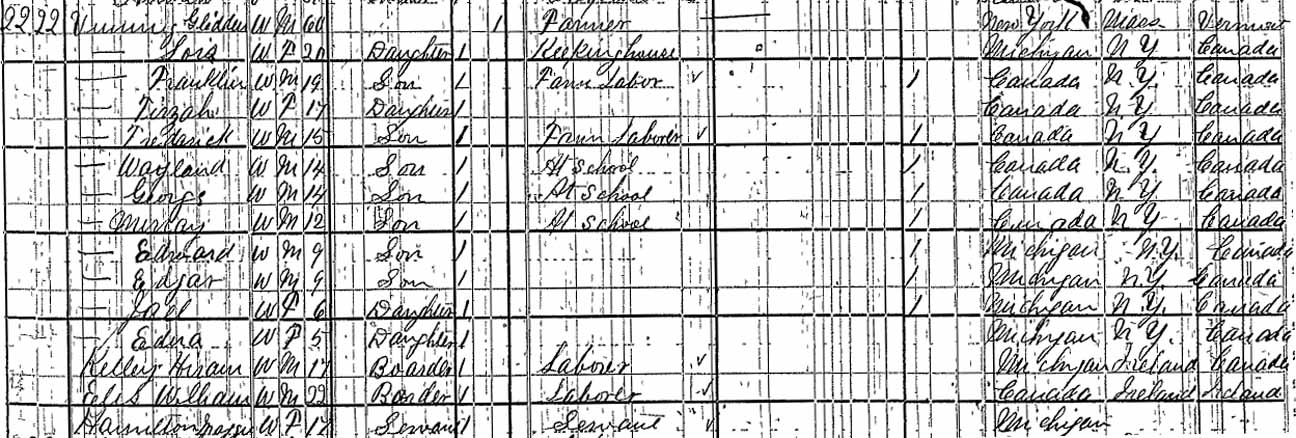 22 22 Vining Glidden W M 60 1 Farmer New York Mass Vermont
— Lois W F 20 Daughter 1 Keeping house Michigan N Y. Canada
— Franklin W M 19 Son 1 Farm Labor 1 Canada N Y. Canada
— Tirzah W F 17 Daughter 1 Canada N Y. Canada
— Frederick W M 15 Son 1 Farm Laborer 1 Canada N Y Canada
— Wayland W M 14 Son 1 At School 1 Canada N Y. Canada
— George W M 14 Son 1 At School 1 Canada N Y Canada
— Murray W M 12 Son 1 At School 1 Canada N Y. Canada
— Edward W M 9 Son 1 1 Michigan N Y. Canada
— Edgar W M 9 Son 1 1 Michigan N Y. Canada
— W F 6 Daughter 1 1 Michigan N Y. Canada
— Edna W F 5 Daughter 1 Michigan N Y. Canada
Kelley Hiram W M 17 Boarder 1 Laborer Michigan Ireland Canada
William W M 22 Boarder 1 Laborer Canada Ireland Ireland
Hamilton W F Servant 1 Servant Michigan